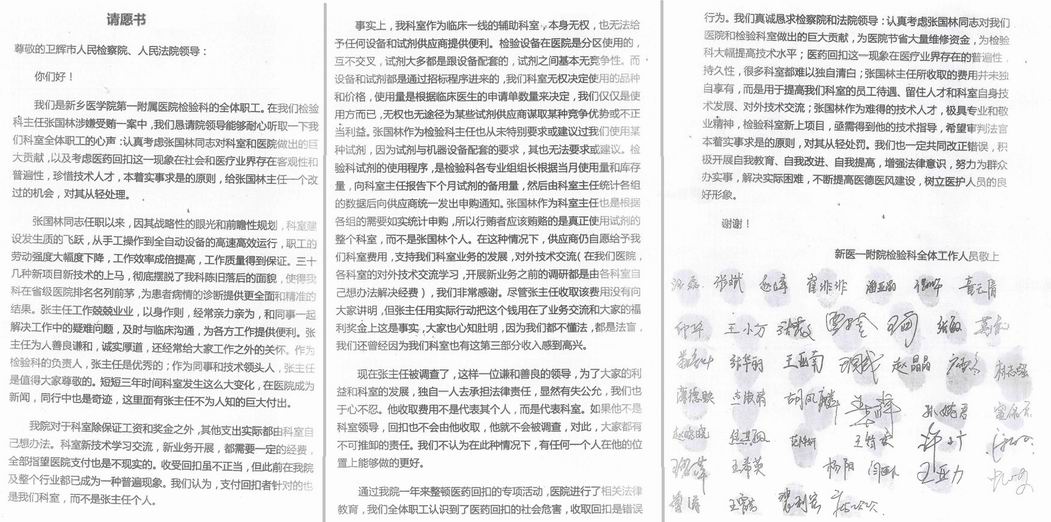 请愿书
尊敬的卫辉市人民检察院、人民法院领导：
你们好！
我们是新乡医学院第一附属医院检验科的全体职工。在我们检验
科主任张国林涉嫌受贿一案中，我们恳请院领导能够耐心听取一下我
们科室全体职工的心声：认真考虑张国林同志对科室和医院做出的巨
大贡献，以及考虑医药回扣这一现象在社会和医疗业界存在客观性和
普遍性，珍惜技术人才，本着实事求是的原则，给张国林主任一个改
过的机会，对其从轻处理。
张国林同志任职以来，因其战略性的眼光和前瞻性规划，科室建
设发生质的飞跃，从手工操作到全自动设备的高速高效运行，职工的
劳动强度大幅度下降，工作效率成倍提高，工作质量得到保证。三十
几种新项目新技术的上马，彻底摆脱了我科陈旧落后的面貌，使得我
科在省级医院排名名列前茅，为患者病情的诊断提供更全面和精准的
结果。张主任工作兢兢业业，以身作则，经常亲力亲为，和同事一起
解决工作中的疑难问题，及时与临床沟通，为各方工作提供便利。张
主任为人善良谦和，诚实厚道，还经常给大家工作之外的关怀。作为
检验科的负责人，张主任是优秀的；作为同事和技术领头人，张主任
是值得大家尊敬的。短短三年时间科室发生这么大变化，在医院成为
新闻，同行中也是奇迹，这里面有张主任不为人知的巨大付出。
我院对于科室除保证工资和奖金之外，其他支出实际都由科室自
己想办法。科室新技术学习交流，新业务开展，都需要一定的经费，
全部指望医院支付也是不现实的。收受回扣虽不正当，但此前在我院
及整个行业都已成为一种普遍现象。我们认为，支付回扣者针对的也
是我们科室，而不是张主任个人。
事实上，我科室作为临床一线的辅助科室，本身无权，也无法给
予任何设备和试剂供应商提供便利。检验设备在医院是分区使用的，
互不交叉，试剂大多都是跟设备配套的，试剂之间基本无竞争性。而
设备和试剂都是通过招标程序进来的，我们科室无权决定使用的品种
和价格，使用量是根据临床医生的申请单数量来决定，我们仅仅是使
用方而已，无权也无途径为某些试剂供应商谋取某种竞争优势或不正
当利益。张国林作为检验科主任也从未特别要求或建议过我们使用某
种试剂，因为试剂与机器设备配套的要求，其也无法要求或建议。检
验科试剂的使用程序，是检验科各专业组组长根据当月使用量和库存
量，向科室主任报告下个月试剂的备用量，然后由科室主任统计各组
的数据后向供应商统一发出申购通知。张国林作为科室主任也是根据
各组的需要如实统计申购，所以行贿者应该贿赂的是真正使用试剂的
整个科室，而不是张国林个人。在这种情况下，供应商仍自愿给予我
们科室费用，支持我们科室业务的发展，对外技术交流(在我们医院，
各科室的对外技术交流学习，开展新业务之前的调研都是由各科室自
己想办法解决经费），我们非常感谢。尽管张主任收取该费用没有向
大家讲明，但张主任用实际行动把这个钱用在了业务交流和大家的福
利奖金上这是事实，大家也心知肚明，因为我们都不懂法，都是法盲，
我们还曾经因为我们科室也有这第三部分收入感到高兴。
现在张主任被调查了，这样一位谦和善良的领导，为了大家的利
益和科室的发展，独自一人去承担法律责任，显然有失公允，我们也
于心不忍。他收取费用不是代表其个人，而是代表科室。如果他不是
科室领导，回扣也不会由他收取，他就不会被调查，对此，大家都有
不可推卸的责任。我们不认为在此种情况下，有任何一个人在他的位
置上能够做的更好。
通过我院一年来整顿医药回扣的专项活动，医院进行了相关法律
教育，我们全体职工认识到了医药回扣的社会危害，收取回扣是错误
行为。我们真诚恳求检察院和法院领导：认真考虑张国林同志对我们
医院和检验科室做出的巨大贡献，为医院节省大量维修资金，为检验
科大幅提高技术水平；医药回扣这一现象在医疗业界存在的普遍性，
持久性，很多科室都难以独自清白；张国林主任所收取的费用并未独
自享有，而是用于提高我们科室的员工待遇、留住人才和科室自身技
术发展、对外技术交流；张国林作为难得的技术人才，极具专业和敬
业精神，检验科室新上项目，亟需得到他的技术指导，希望审判法官
本着实事求是的原则，对其从轻处罚。我们也一定共同改正错误，积
极开展自我教育、自我改进、自我提高，增强法律意识，努力为群众
办实事，解决实际困难，不断提高医德医风建设，树立医护人员的良
好形象。
谢谢！
新医一附院检验科全体工作人员敬上
张斌
王小方
王亚南
赵晶晶
胡凤麟
王希英
杨阳
王亚力